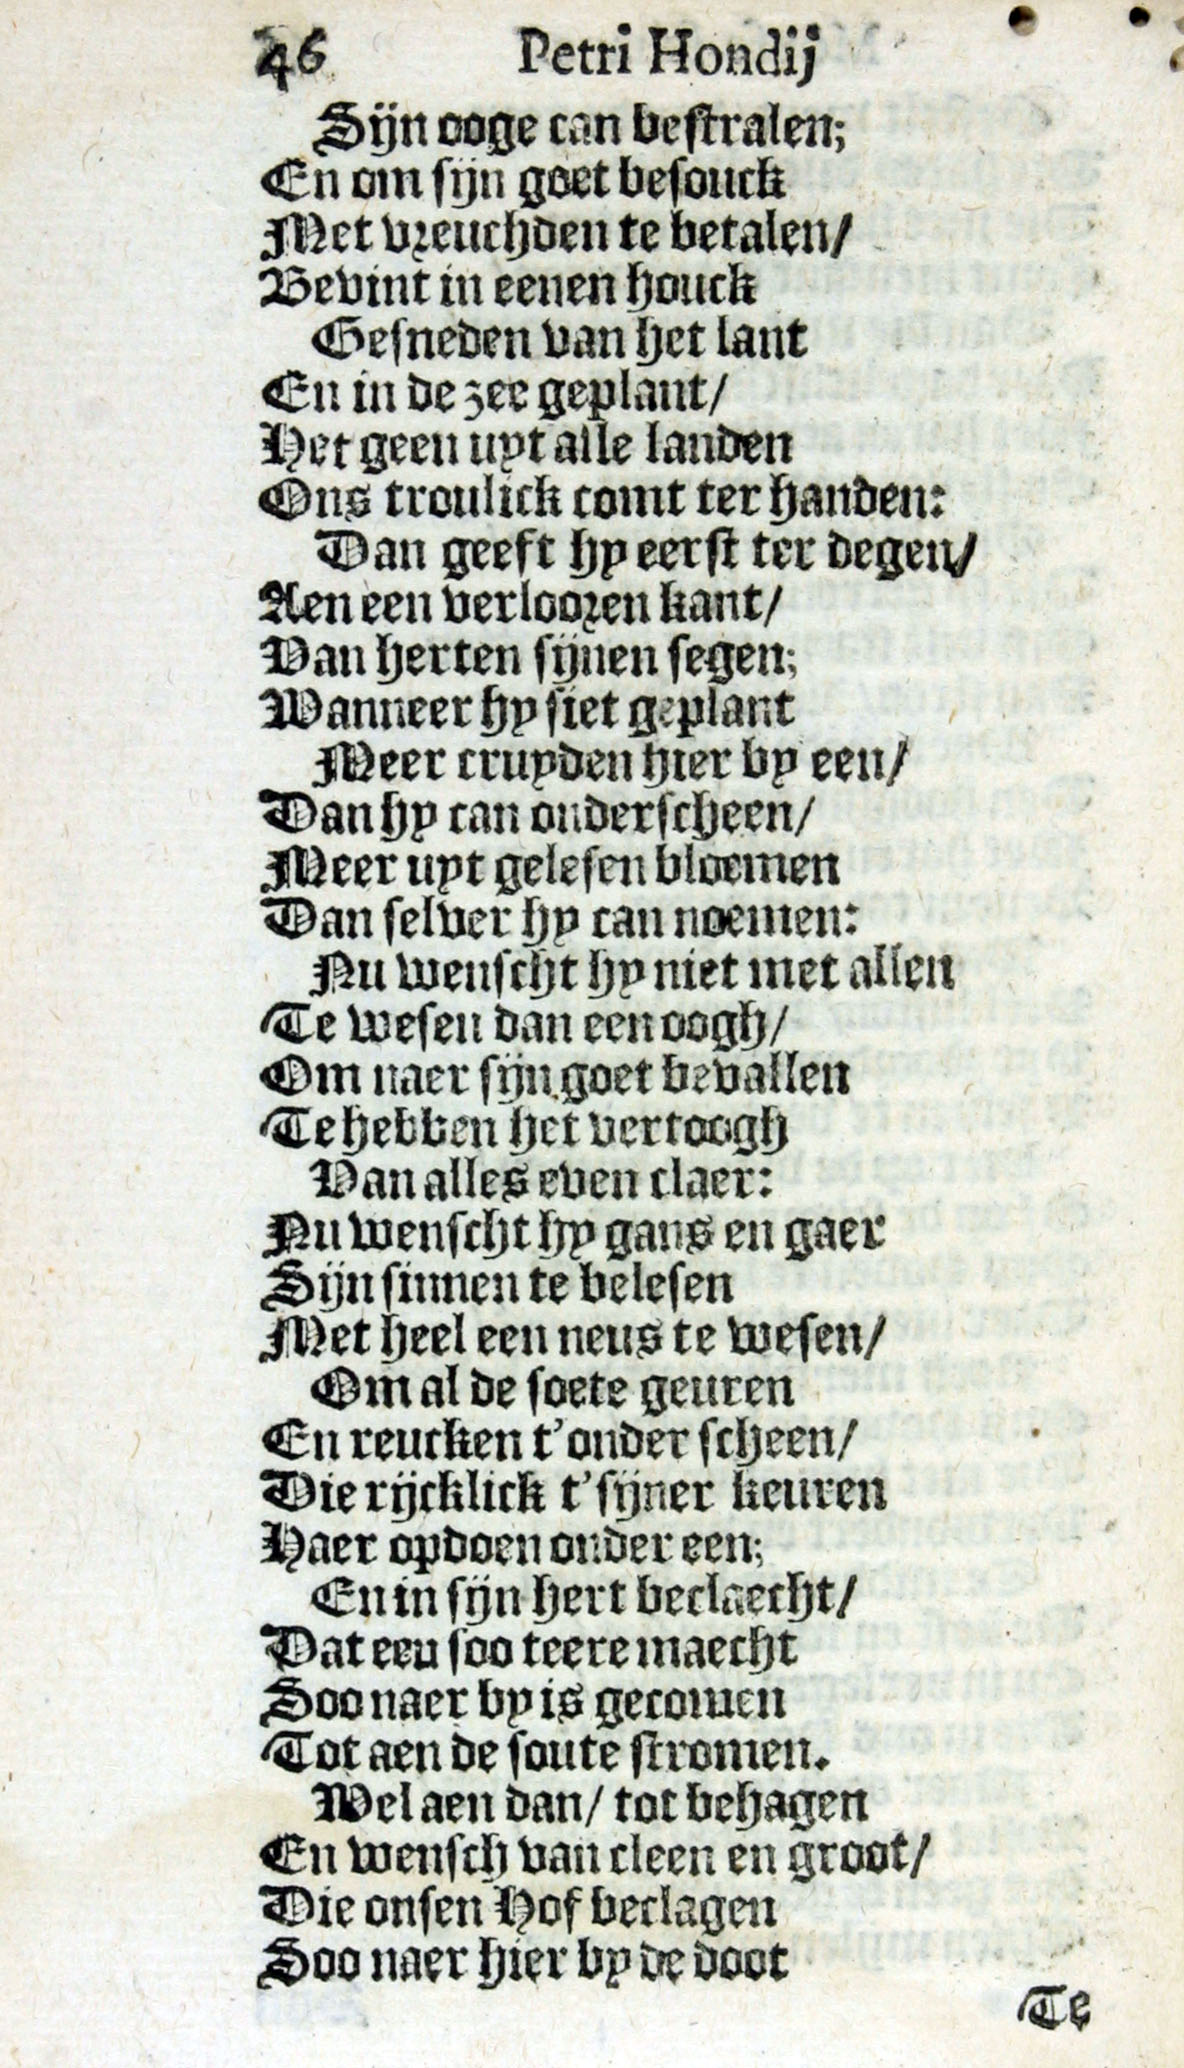 46 Petri Hondij
Sijn ooge can bestralen;
En om sijn goet besouck
Met vreuchden te betalen/
Bevint in eenen houck
Gesneden van het lant
En in de zee geplant/
Het geen uyt alle landen
Ons troulick comt ter handen:
Dan geeft hy eerst ter degen/
Aen een verlooren kant/
Van herten sijnen segen;
Wanneer hy siet geplant
Meer cruyden hier by een/
Dan hy can onderscheen/
Meer uyt gelesen bloemen
Dan selver hy can noemen:
Nu wenscht hy niet met allen
Te wesen dan een oogh/
Om naer sijn goet bevallen
Te hebben het vertoogh
Van alles even claer:
Nu wenscht hy gans en gaer
Sijn sinnen te belesen
Met heel een neus te wesen/
Om al de soete geuren
En reucken t'onder scheen/
Die rijcklick t'sijner keuren
Haer opdoen onder een;
En in sijn hert beclaecht/
Dat een soo teere maecht
Soo naer by is gecomen
Tot aen de soute stromen.
Wel aen dan/ tot behagen
En wensch van cleen en groot/
Die onsen Hof beclagen
Soo naer hier by de doot
Te